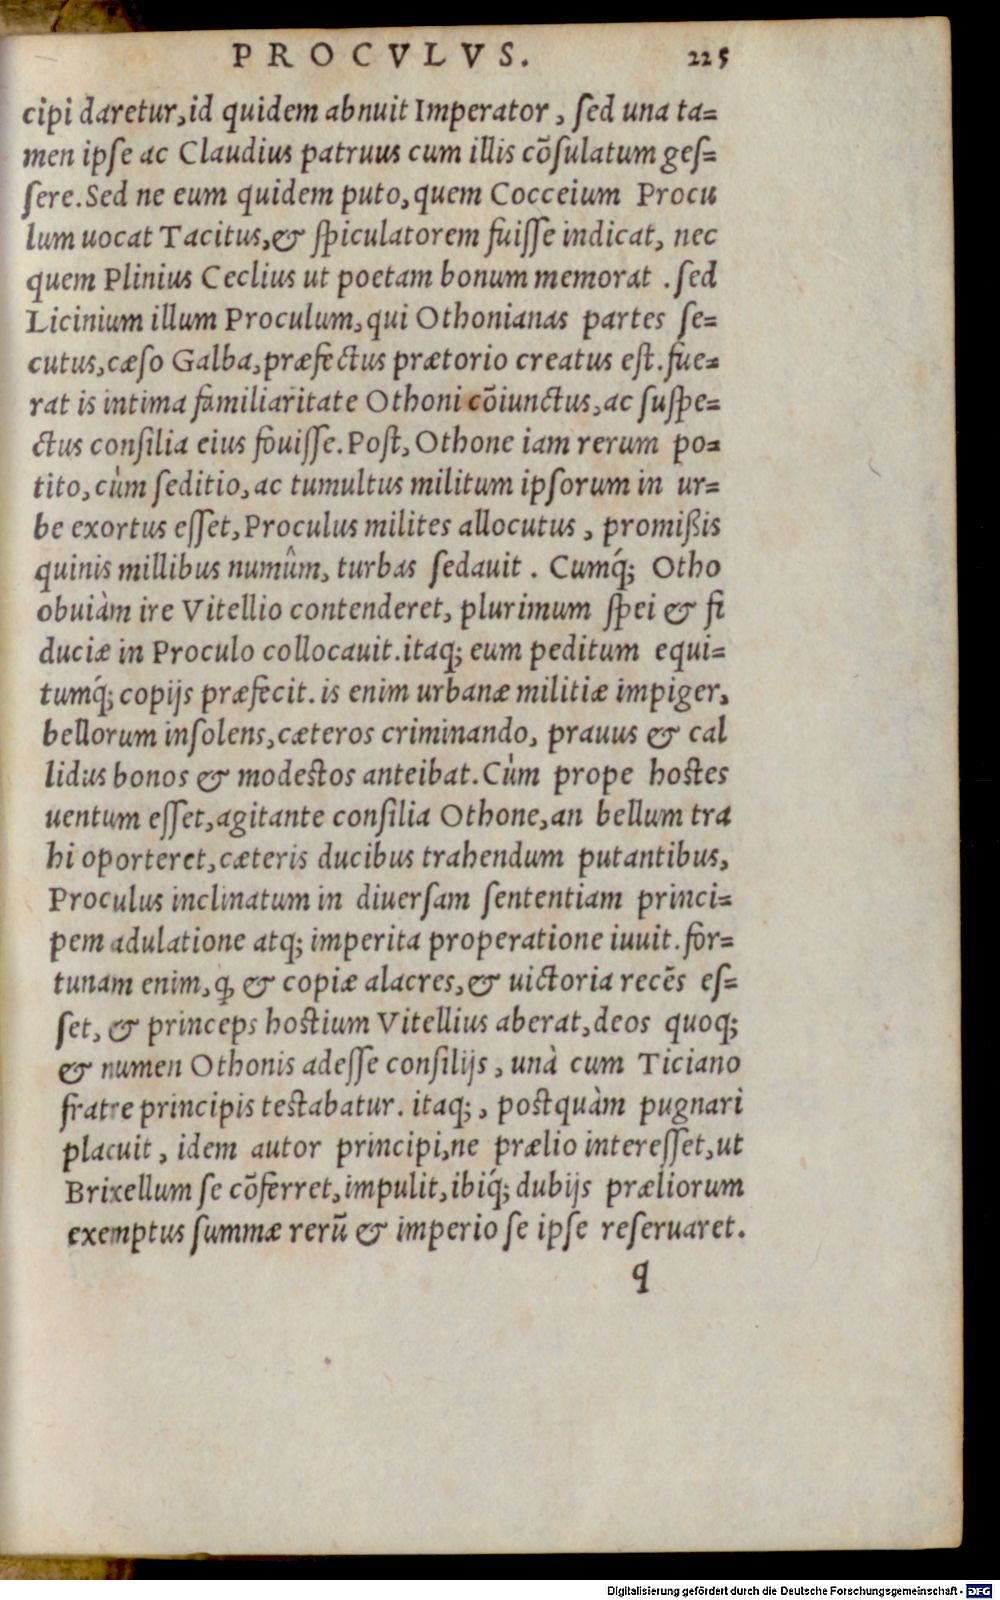 PROCVLVS. 225
cipi daretur, id quidem abnuit Imperator, sed una ta=
men ipse ac Claudius patruus cum illis cõsulatum ges=
sere. Sed ne eum quidem puto, quem Cocceium Procu
lum uocat Tacitus, & spiculatorem fuisse indicat, nec
quem Plinius Ceclius ut poetam bonum memorat . sed
Licinium illum Proculum, qui Othonianas partes se=
cutus, cæso Galba, præfectus prætorio creatus est. fue=
rat is intima familiaritate Othoni cõiunctus, ac suspe=
ctus consilia eius fouisse. Post, Othone iam rerum po=
tito, cùm seditio, ac tumultus militum ipsorum in ur=
be exortus esset, Proculus milites allocutus, promißis
quinis millibus numûm, turbas sedauit. Cumq́; Otho
obuiàm ire Vitellio contenderet, plurimum spei & fi
duciæ in Proculo collocauit. itaq; eum peditum equi=
tumq́; copijs præfecit. is enim urbanæ militiæ impiger,
bellorum insolens, cæteros criminando, prauus & cal
lidus bonos & modestos anteibat. Cùm prope hostes
uentum esset, agitante consilia Othone, an bellum tra
hi oporteret, cæteris ducibus trahendum putantibus,
Proculus inclinatum in diuersam sententiam princi=
pem adulatione atq; imperita properatione iuuit. for=
tunam enim, ꝙ & copiæ alacres, & uictoria recẽs es=
set, & princeps hostium Vitellius aberat, deos quoq;
& numen Othonis adesse consilijs, unà cum Ticiano
fratre principis testabatur. itaq;, postquàm pugnari
placuit, idem autor principi, ne prælio interesset, ut
Brixellum se cõferret, impulit, ibiq́; dubijs præliorum
exemptus summæ rerũ & imperio se ipse reseruaret.
q
Digitalisierung gefördert durch die Deutsche Forschungsgemeinschaft - DFG